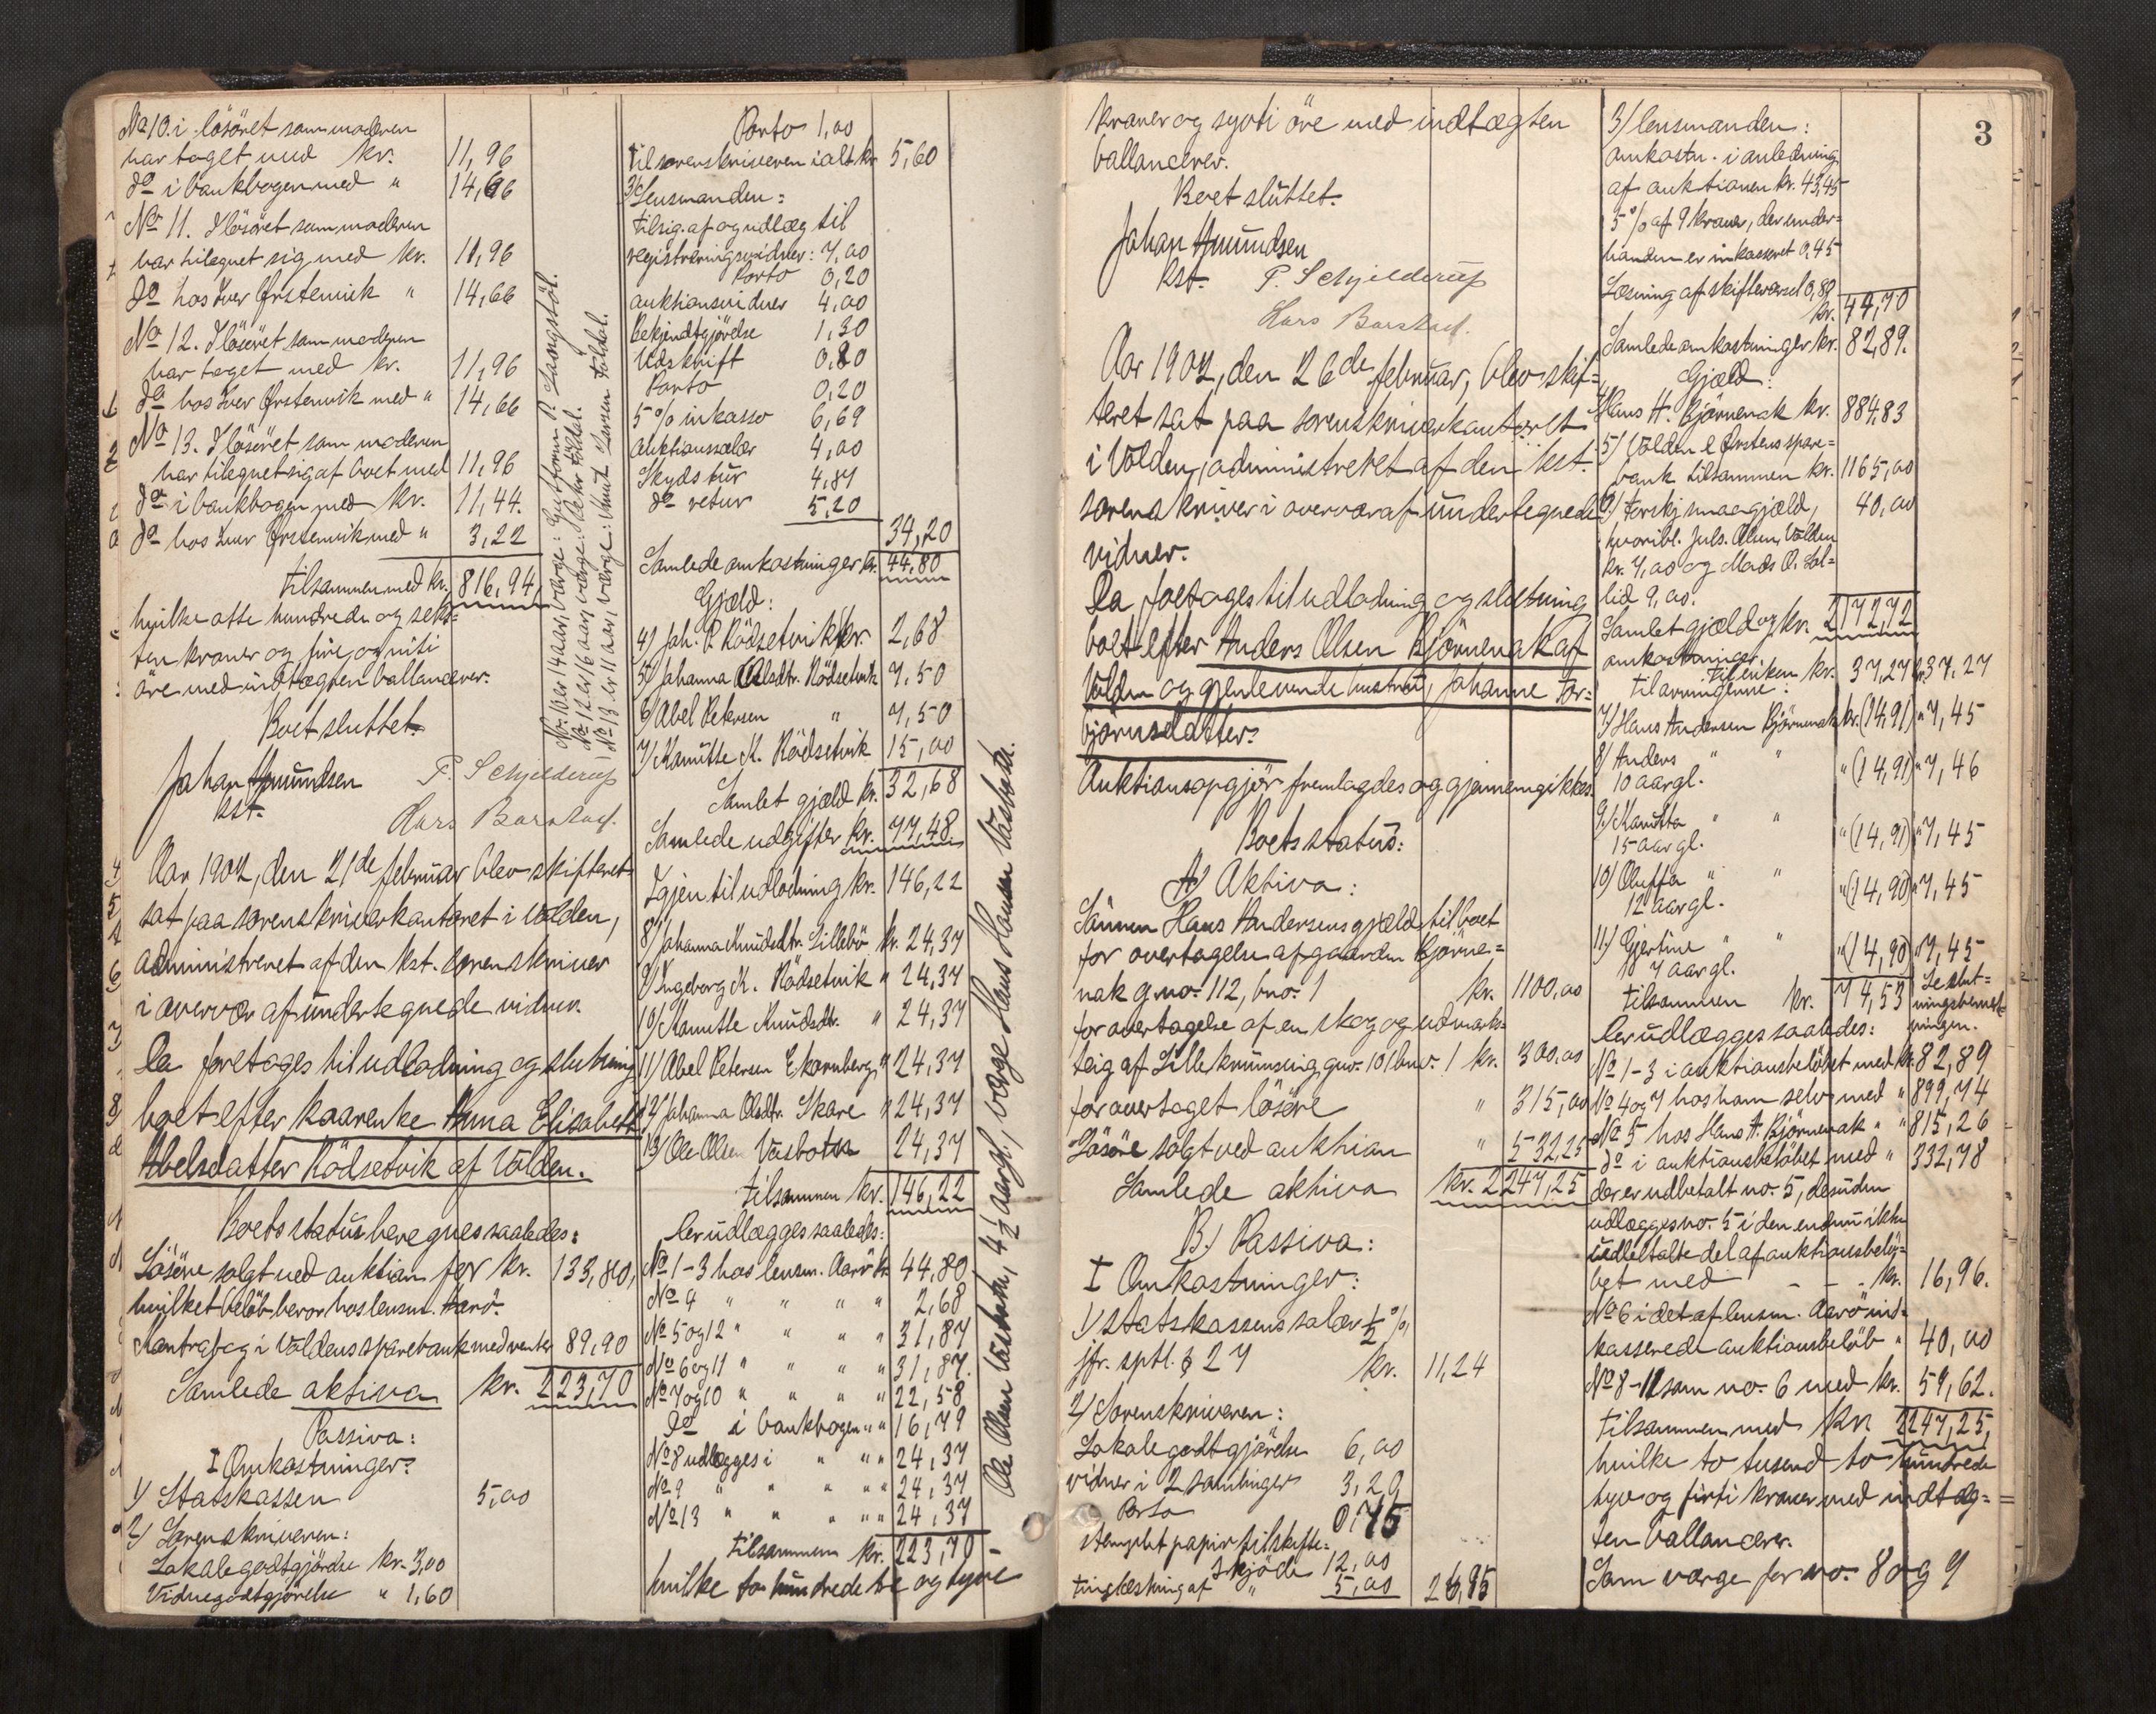 No 10. i lösöret som moderen
har taget med kr. 11,96
do i bankbogen med " 14,66
No 11. I lösöret som moderen
har tilegnet sig med kr. 11,96
do hos Iver Ørstenvik " 14,66
No 12. I lösöret som moderen
har taget med kr. 11,96
do hos Iver Ørstenvik med " 14,66
No 13. I lösöret som moderen
har tilegnet sig af boet med 11,96
do i bankbogen med kr. 11,44.
do hos Iver Ørstenvik med " 3,22
tilsammen med kr. 816,94,
hvilke otte hundrede og seks=
ten kroner og fire og niti
öre med indtægten ballancerer.
Boet sluttet.
Johan Amundsen
kst.
P. Schjelderup
Hans Barstad.
Aar 1907, den 21de februar blev skifteret
sat paa sorenskriverkontoret i Volden,
administreret af den kst. sorenskriver
i overvær af undertegnede vidner.
Da foretoges til udlodning og slutning
boet efter kaarenke Anna Elisabeth
Abelsdatter Rödsetvik af Volden.
Boets status beregnes saaledes:
Lösöre solgt ved auktion for kr. 133,80,
hvilket belöb beror hos lensm. Aarö.
Kontrabog i Voldens sparebank med renter 89,90
Samlede aktiva kr. 223,70
Passiva:
I Omkostninger:
1) Statskassen 5,00
2) Sorenskriveren:
Lokalegodtgjörelse kr. 3,00
Vidnegodtgjörelse " 1,60
No 10 er 14 aar, værge: Guttorm P. Langstöl.
No 12 er 16 aar, værge: Peter Földal.
No 13 er 11 aar, værge: Knut Larsen Földal.
Porto 1,00
til sorenskriveren ialt kr. 5,60
3) Lensmanden:
tilsig. af og udlæg til
registreringsvidner: 7,00
Porto 0,20
auktionsvidner 4,00
bekjendtgjörelse 1,30
Udskrift 0,80
Porto 0,20
5 % inkasso 6,69
auktionssalær 4,00
Skyds tur 4,81
do retur 5,20
34,20
Samlede omkostninger kr. 44,80
Gjæld:
4) Joh. P. Rödsetvik kr. 2,68
5) Johanna Olsdtr. Rödsetvik 7,50
6) Abel Petersen " 7,50
7) Kanutte K. Rödsetvik 15,00
Samlet gjæld kr. 32,68
Samlede udgifter kr. 77,48.
Igjen til udlodning kr. 146,22
8) Johanna Knudsdtr. Lillebö kr. 24,37
9) Ingeborg K. Rödsetvik " 24,37
10) Kanutte Knudsdtr. " 24,37
11) Abel Petersen Ekornberg " 24,37
12) Johanna Olsdtr. Skare " 24,37
13) Ole Olsen Vasbotn 24,37
tilsammen kr. 146,22
der udlægges saaledes:
No 1-3 hos lensm. Aarö kr. 44,80
No 4 " " " " 2,68
No 5 og 12 " " " " 31,87
No 6 og 11 " " " " 31,87.
No 7 og 10 " " " " 22,58
do i bankbogen " " 16,79
No 8 udlægges i " " " 24,37
No 9 " " " " 24,37
No 13 " " " " 24,37
tilsammen kr. 223,70 -
hvilke to hundrede tre og tyve
Ole Olsen Vasbotn, 4½ aargl., værge Hans Hansen Vasbotn.
3
kroner og sytti öre med indtægten
ballancerer.
Boet sluttet.
Johan Amundsen
kst.
P. Schjelderup
Hans Barstad.
Aar 1907, den 26de februar, blev skif=
teret sat paa sorenskriverkontoret
i Volden, administreret af den kst.
sorenskriver i overvær af undertegnede
vidner.
Da foretoges til udlodning og slutning
boet efter Anders Olsen Björnenak af
Volden og gjenlevende hustru, Johanne Tor=
björnsdatter.
Auktionsopgjör fremlagdes og gjennemgikkes.
Boets status:
A) Aktiva:
Sönnen Hans Andersens gjæld til boet
for overtagelse af gaarden Björne=
nak g.no. 112, bno. 1 kr. 1100,00
for overtagelse af en skog og udmarks=
teig af Lille gno. 101 bno. 1 kr. 300,00
for overtaget lösöre " 315,00
Lösöre solgt ved auktion " 532,25
Samlede aktiva kr. 2247,25
B.) Passiva:
I Omkostninger:
1) Statskassens salær ½ %,
jfr. sptl. § 27 kr. 11,24
2) Sorenskriveren:
Lokalegodtgjörelse 6,00
vidner i 2 samlinger 3,20
Porto 0,75
stemplet papir til skifte=
skjöde 12,00
tinglæsning af " 5,00 26,95
3) lensmanden:
omkostn. i anledning
af auktionen kr. 43,45
5 % af 9 kroner, der under=
haanden er inkasseret 0,45
Læsning af skiftevarsel 0,80
kr. 44,70
Samlede omkostninger kr. 82,89.
Gjæld:
4) Hans A. Björnenak kr. 884,83
5) Volden & Ørstens spare=
bank tilsammen kr. 1165,00
6) Forskj. smaagjæld, 40,00
hvoribl. Juls. Aaen, Volden
kr. 7,00 og Mads O. Sol=
lid 9,00.
Samlet gjæld og kr. 2172,72
omkostninger
til enken kr. 37,27 kr. 37,27
til arvingerne:
7) Hans Andersen Björnenak kr. (14,91) " 7,45
8) Anders " " " (14,91) " 7,46
10 aar gl.
9) Kanutta " " " (14,91) " 7,45
15 aar gl.
10) Oluffa " " " (14,90) " 7,45
12 aar gl.
11) Gjertine " " " (14,90) " 7,45
7 aar gl.
tilsammen kr. 74,53
Se slut=
ningsbemerk=
ningen.
der udlægges saaledes:
No 1-3 i auktionsbelöbet med kr. 82,89
No 4 og 7 hos ham selv med " 899,74
No 5 hos Hans A. Björnenak " " 815,26
do i auktionsbelöbet med " 332,78
der er udbetalt no. 5, desuden
udlægges no. 5 i den endnu ikke
udbetalte del af auktionsbelö=
bet med - - - kr. 16,96.
No 6 i det af lensm. Aarö ind=
kasserede auktionsbelöb " 40,00
No 8-11 som no. 6 med kr. 59,62.
tilsammen med kr. 2247,25,
hvilke to tusend to hundrede
syv og firti kroner med indtæg=
ten ballancerer.
Som værge for no. 8 og 9